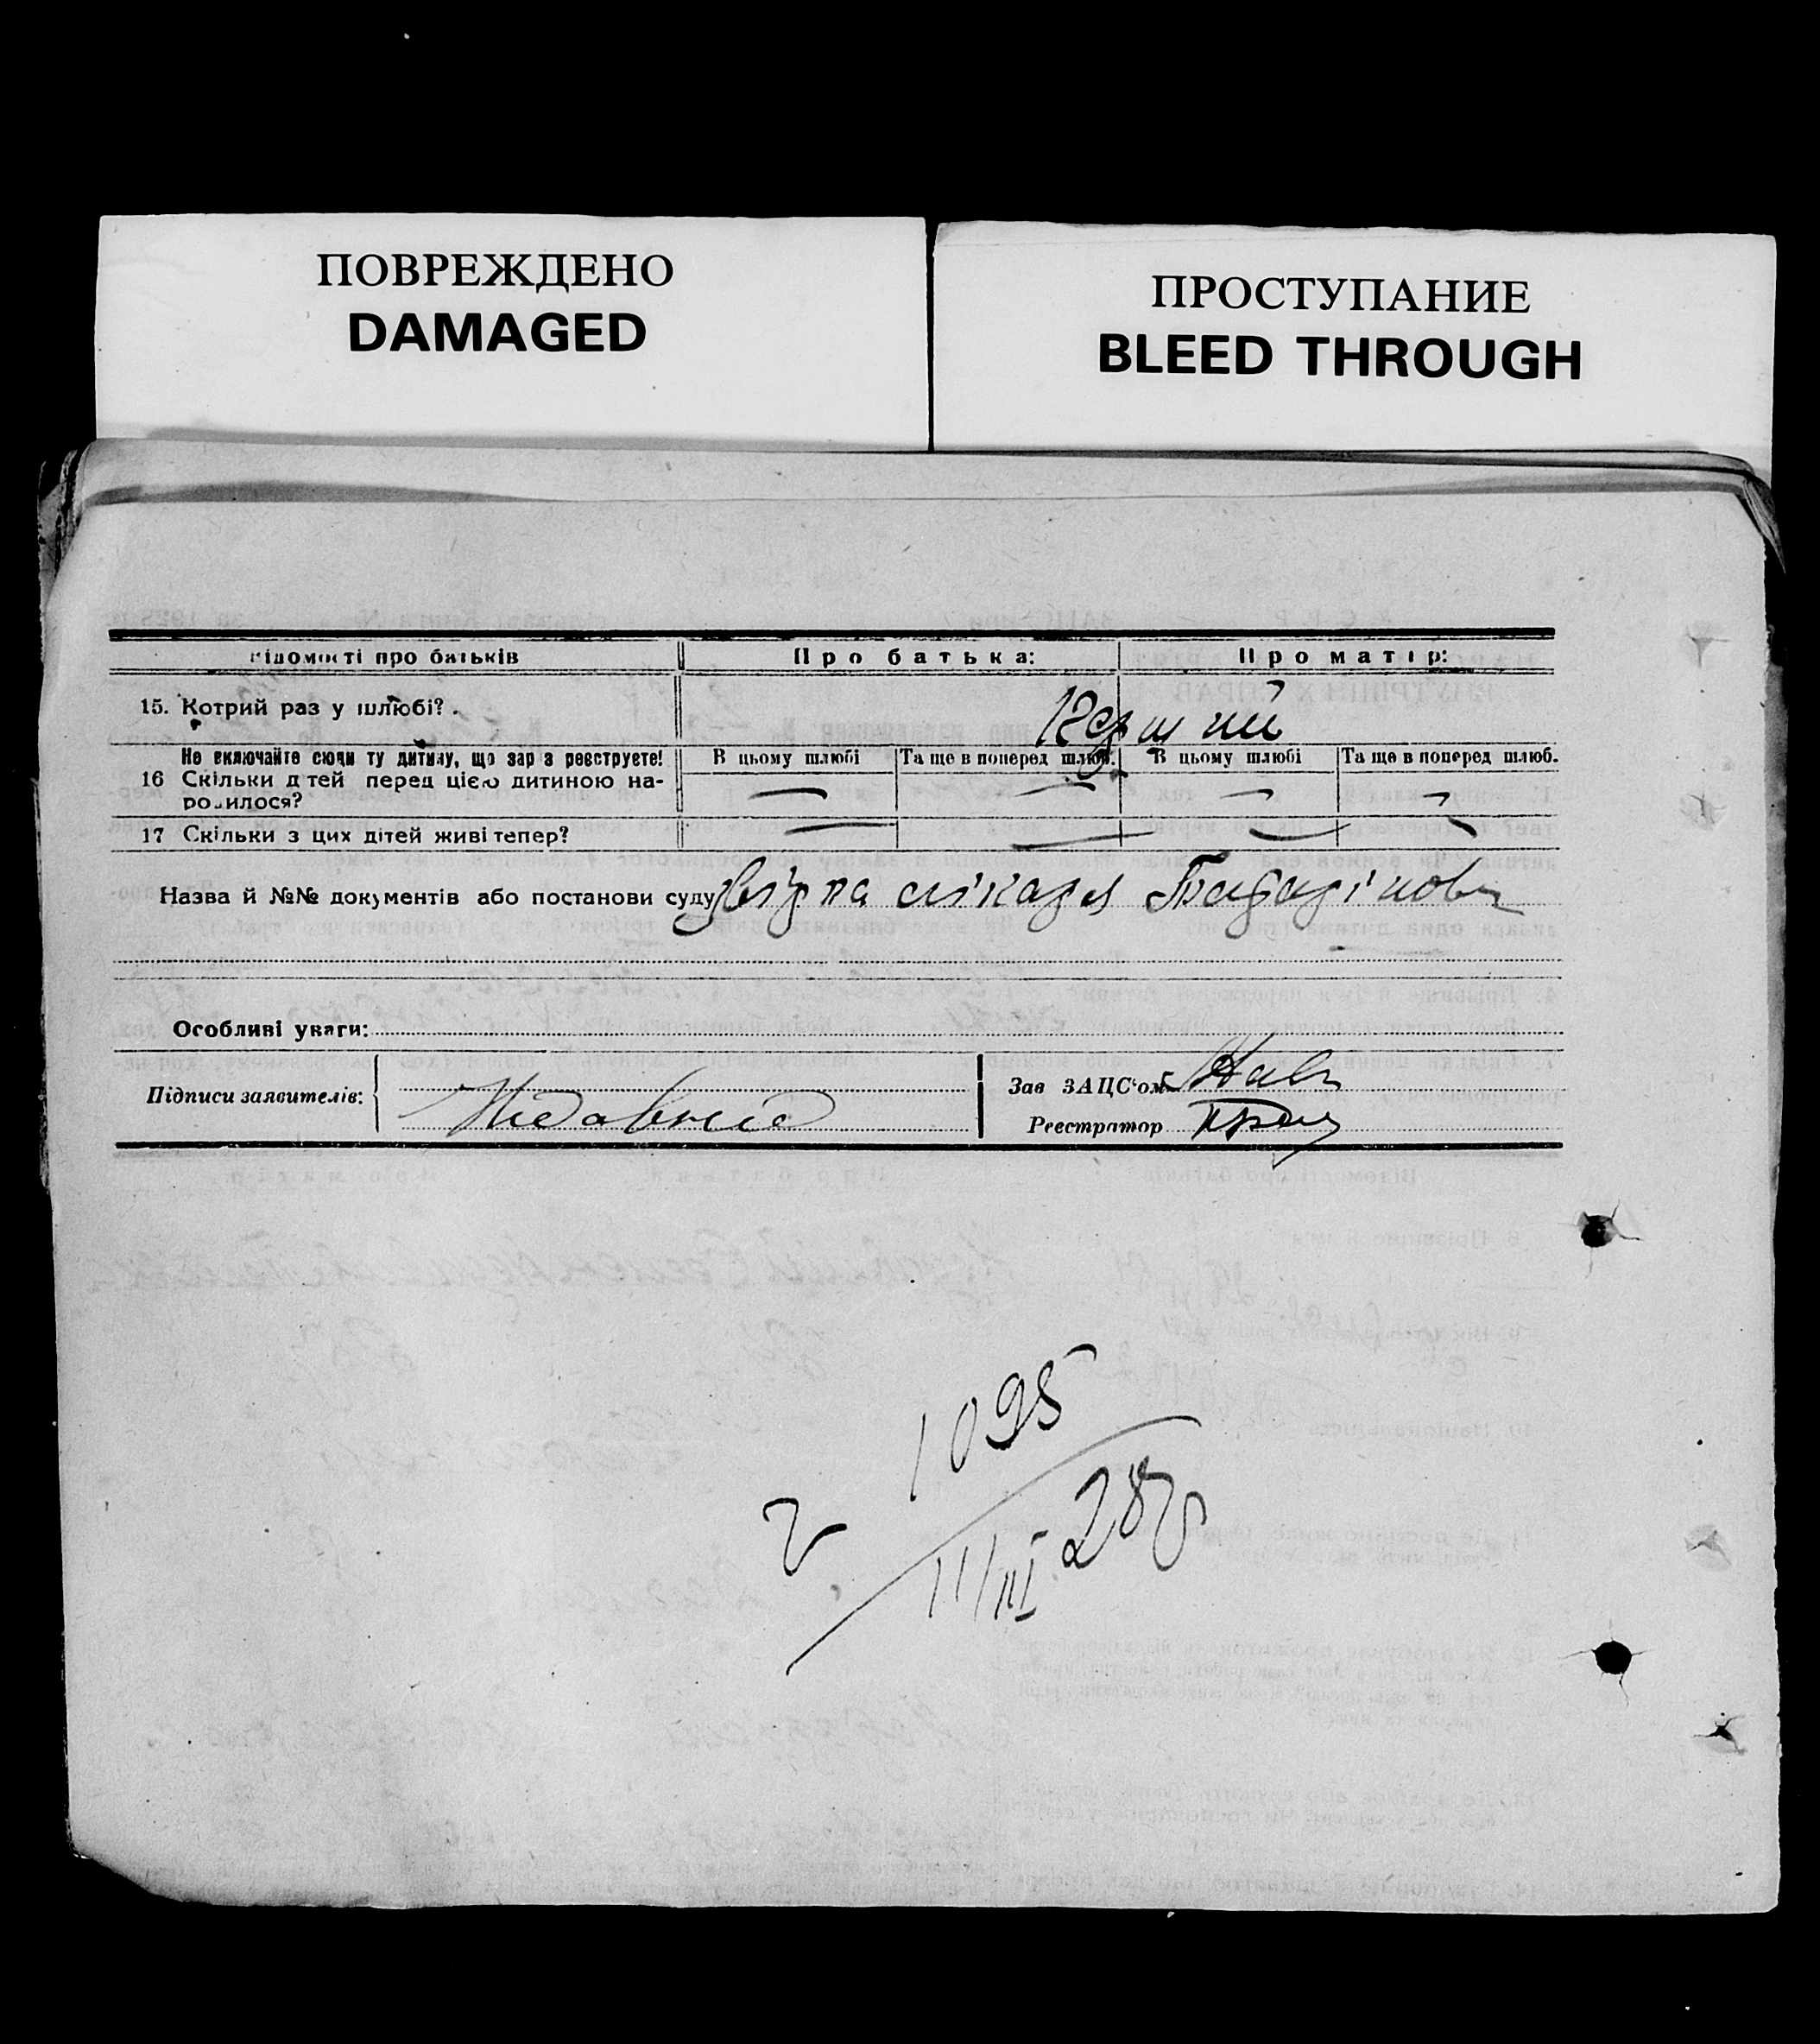 ПОВРЕЖДЕНО
DAMAGED
ПРОСТУПАНИЕ
BLEED THROUGH
відомості про батьків Про батька: Про матір:
15. Котрий раз у шлюбі? . Перший
Не включайте сюди ту дитину, що зар з реєструєте! В цьому шлюбі Та ще в поперед шлюб. В цьому шлюбі Та ще в поперед шлюб.
16 Скільки д тей перед цією дитиною на- — — — —
родилося?
17 Скільки з цих дітей живі тепер? — — — —
Назва й №№ документів або постанови суду Довідка лікаря
Особливі уваги:
Підписи заявителів:
Зав ЗАЦС'ом
Реєстратор
1095
2
11/III 28р